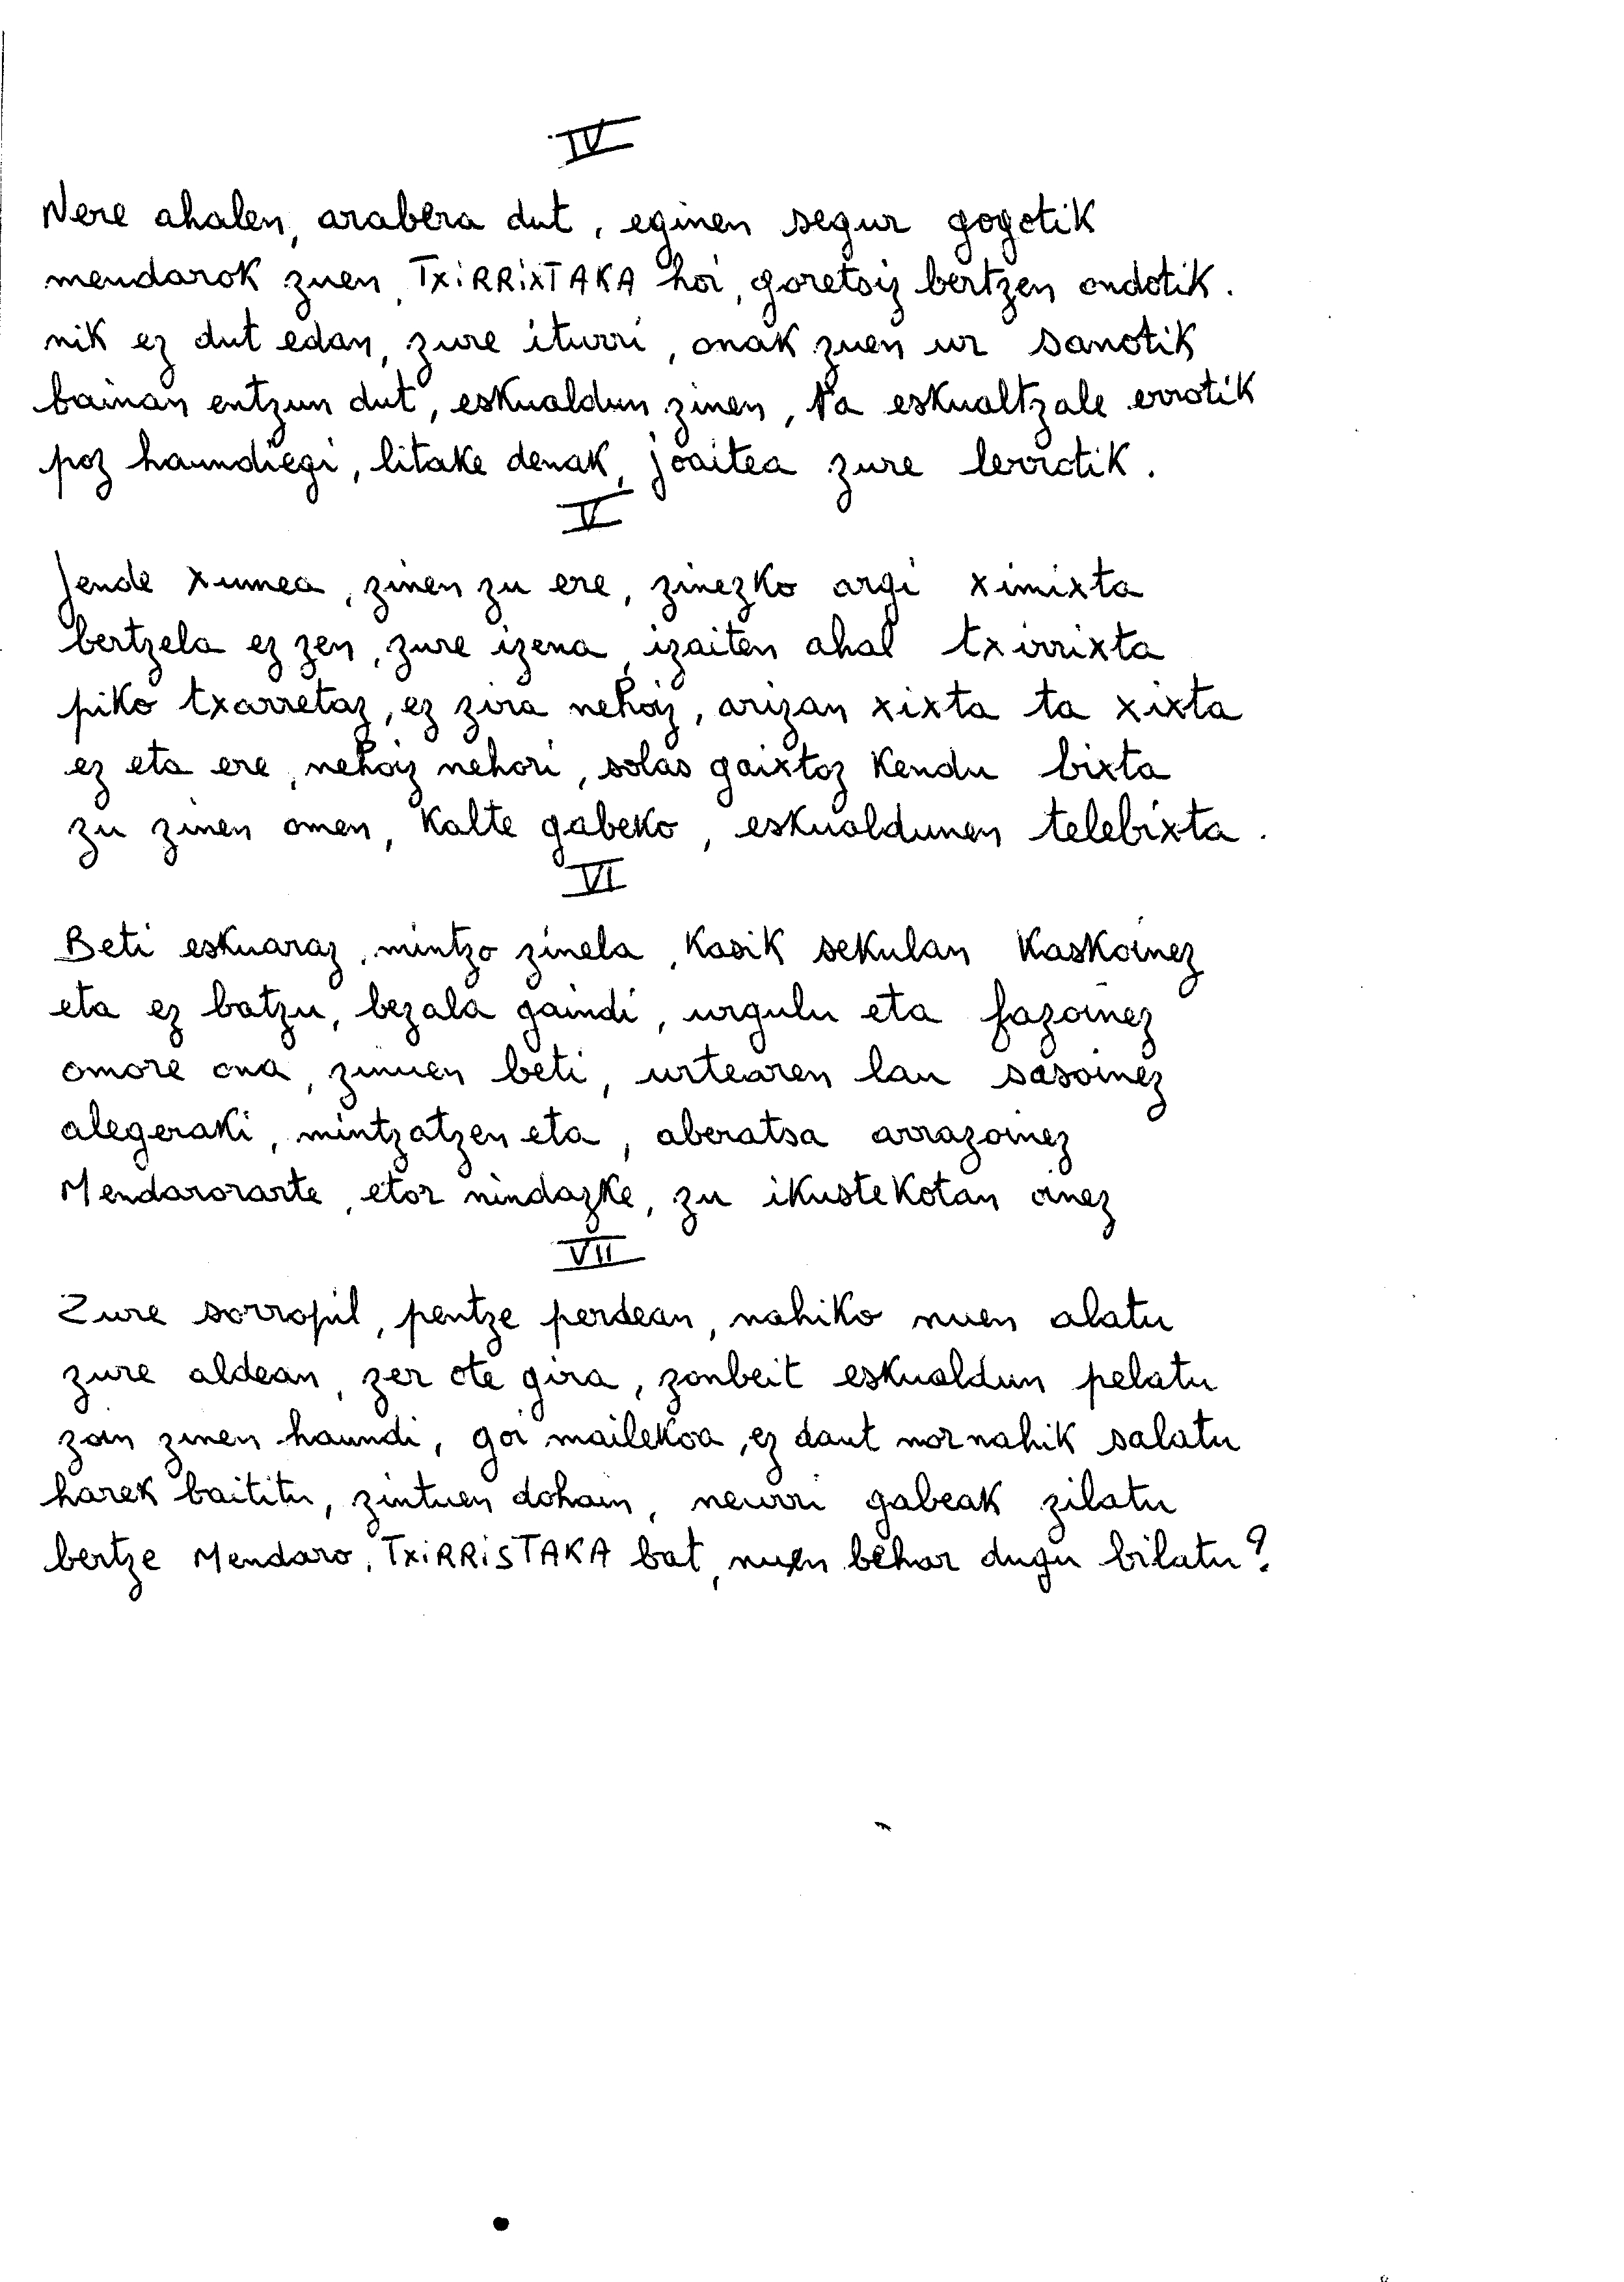 IV
Nere ahalen, arabera dut, eginen segur gogotik
mendarok zuen, TXiRRiXTAKA hoi, goretsiz bertzen ondotik.
nik ez dut edan, zure iturri, onak zuen ur sanotik
bainan entzun dut, eskualdun zinen, ta eskualtzale errotik
poz haundiegi, litake denak, joaitea zure lerrotik.
V
Jende xumea, zinen zu ere, zinezko argi ximixta
bertzela ez zen, zure izena, izaiten ahal txirrixta
piko txarretaz, ez zira nehoiz, arizan xixta ta xixta
ez eta ere, nehoiz nehori, solas gaixtoz kendu bixta
zu zinen omen, kalte gabeko, eskualdunen telebixta.
VI
Beti eskuaraz, mintzo zinela, kasik sekulan kaskoinez
eta ez batzu, bezala gaindi, urgulu eta fazoinez
omore ona, zinuen beti, urtearen lau sasoinez
alegeraki, mintzatzen eta, aberatsa arrazoinez
Mendarorarte, etor nindazke, zu ikustekotan oinez
VII
Zure sorropil, pentze perdean, nahiko nuen alatu
zure aldean, zer ote gira, zonbeit eskualdun pelatu
zoin zinen haundi, goi mailekoa, ez daut nornahik salatu
harek baititu, zintuen dohain, neurri gabeak zilatu
bertze Mendaro, TXiRRiSTAKA bat, nuen behar dugu bilatu?